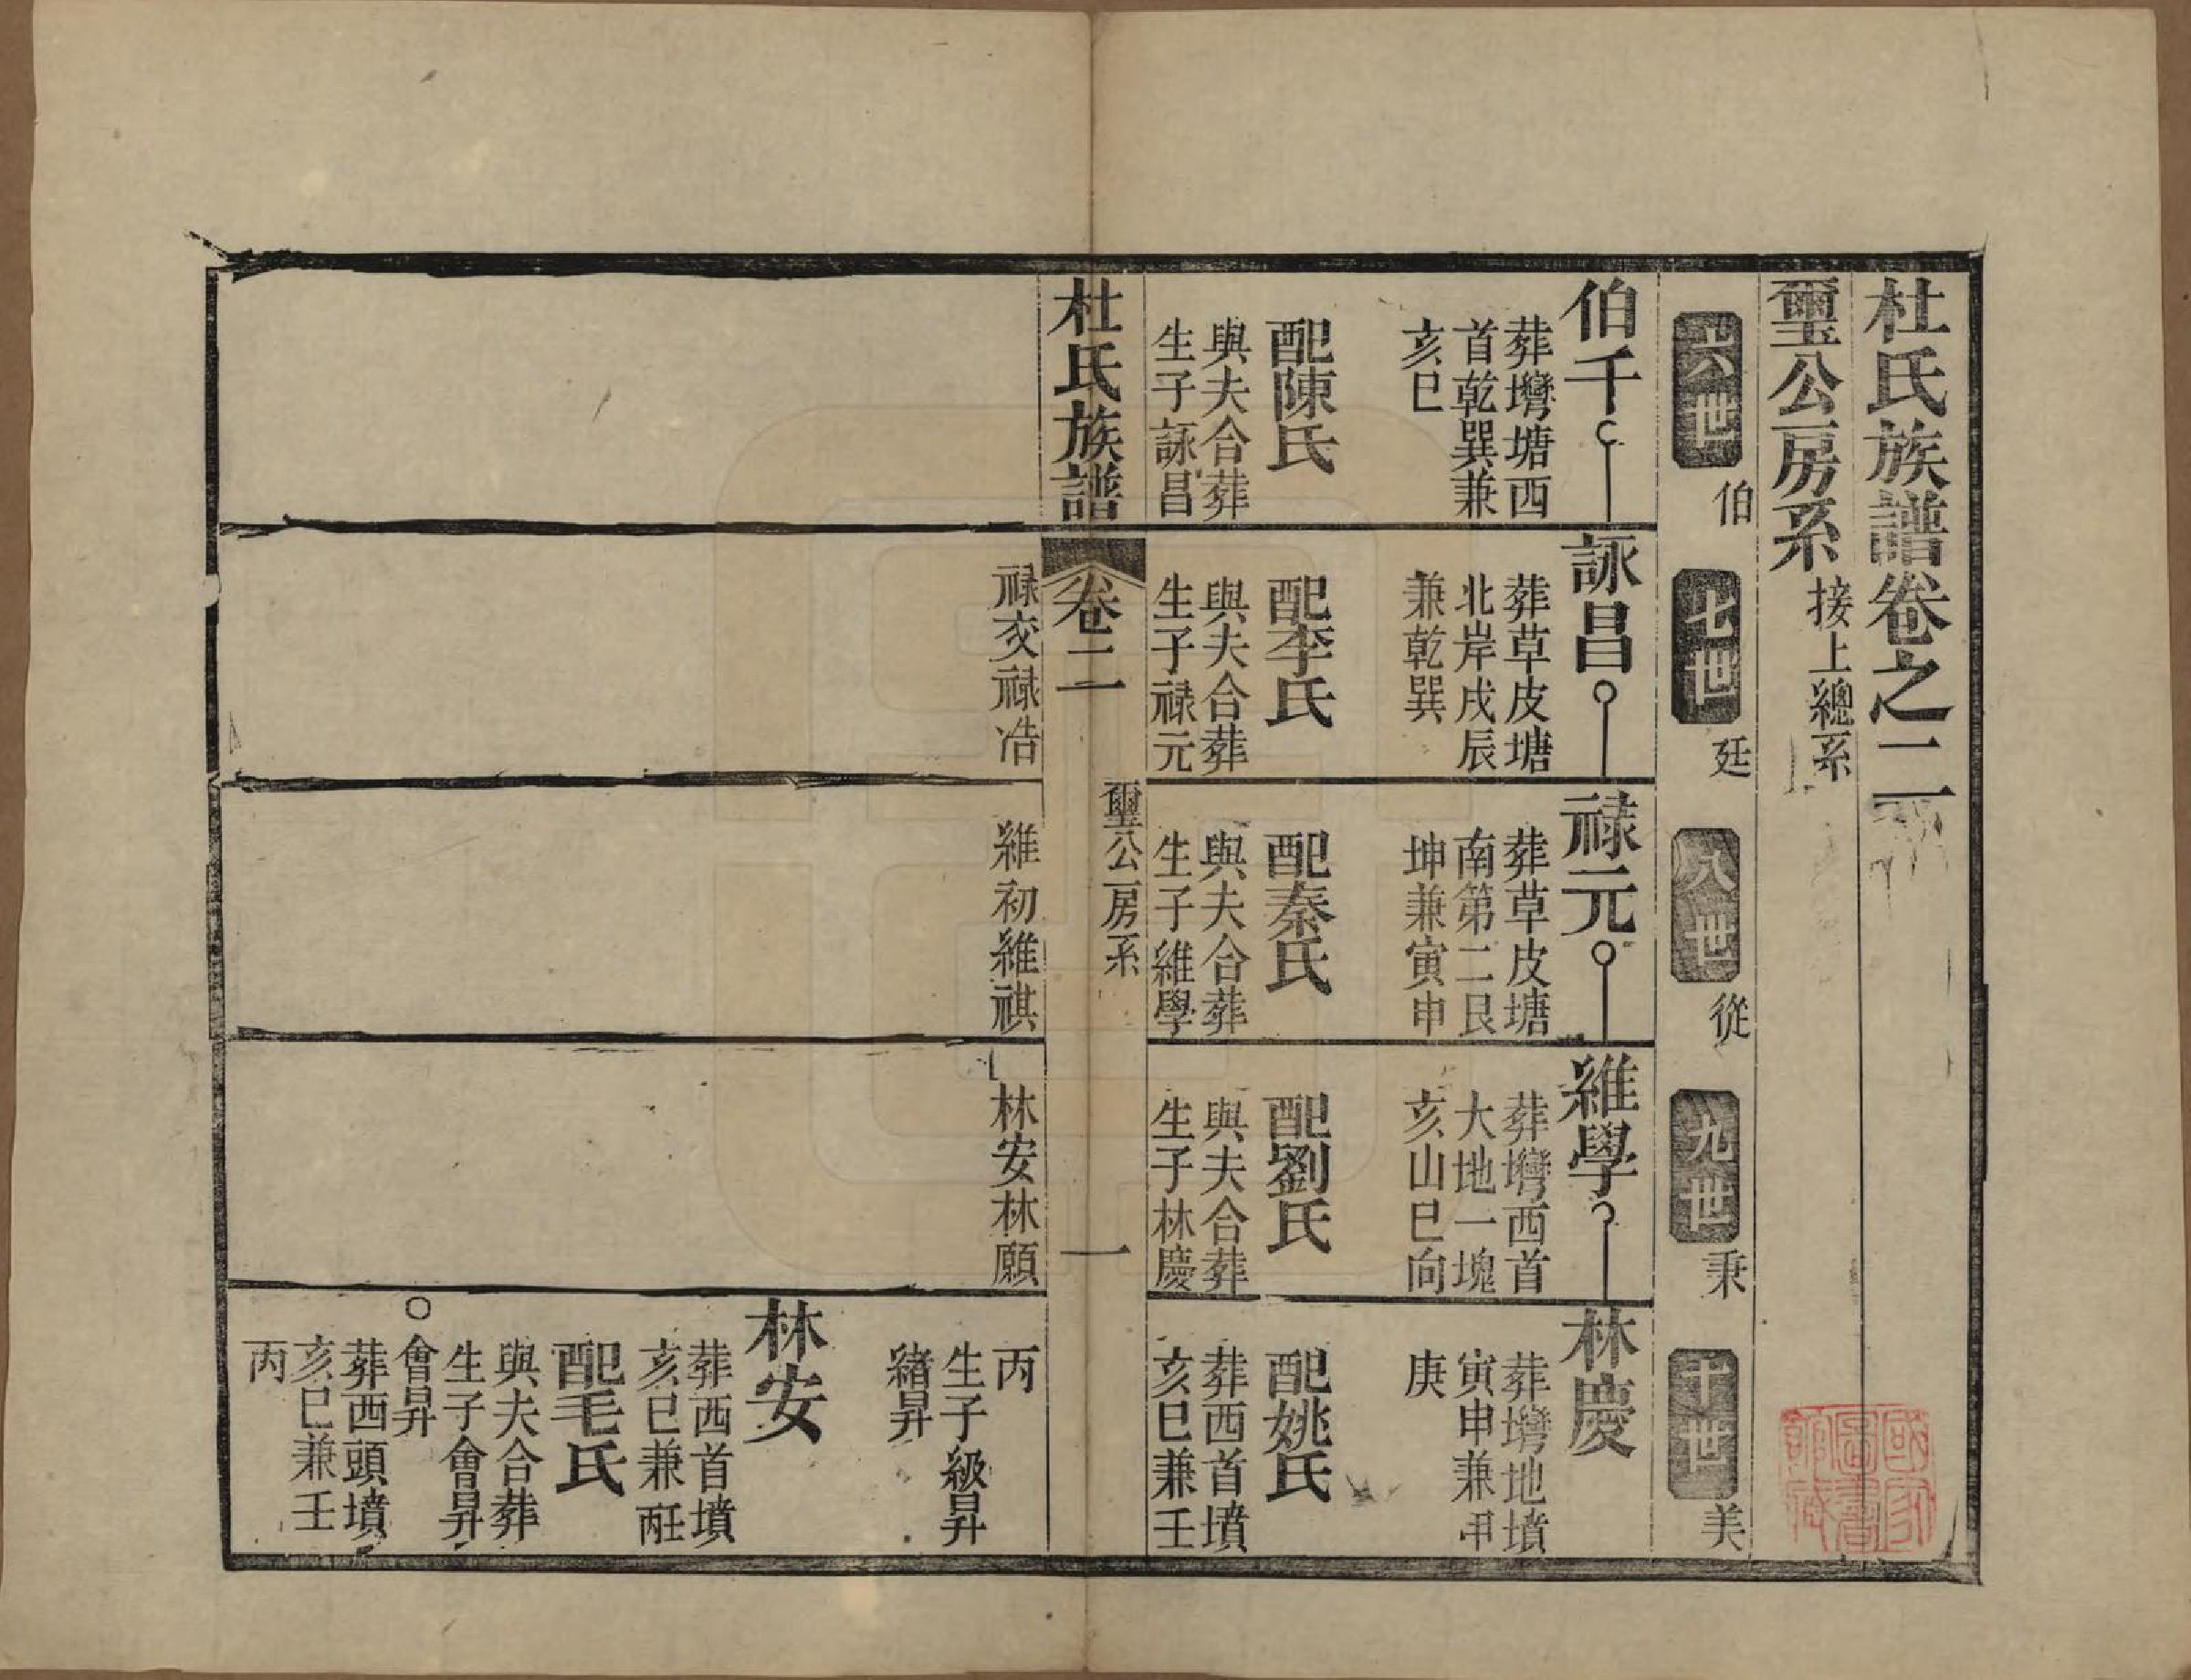 杜氏族譜卷之二
璽公房系 接上總系
六世 伯
七世 廷
八世 從
九世 秉
十世 美
伯千
葬塆塘西
首乾巽兼
亥巳
配陳氏
與夫合葬
生子詠昌
詠昌
葬草皮塘
北岸戌辰
兼乾巽
配李氏
與夫合葬
生子禄元
禄元
葬草皮塘
南第二艮
坤兼寅申
配秦氏
與夫合葬
生子維學
維學
葬塆西首
大地一塊
亥山巳向
配劉氏
與夫合葬
生子林慶
林慶
葬塆地墳
寅申兼甲
庚
配姚氏
葬西首墳
亥巳兼壬
杜氏族譜
卷二
璽公房系
一
禄交禄浩
維初維祺
林安林願
丙
生子級昇
緒昇
林安
葬西首墳
亥巳兼壬丙
配毛氏
與夫合葬
生子會昇
○會昇
葬西頭墳
亥巳兼壬
丙
國家圖書館藏